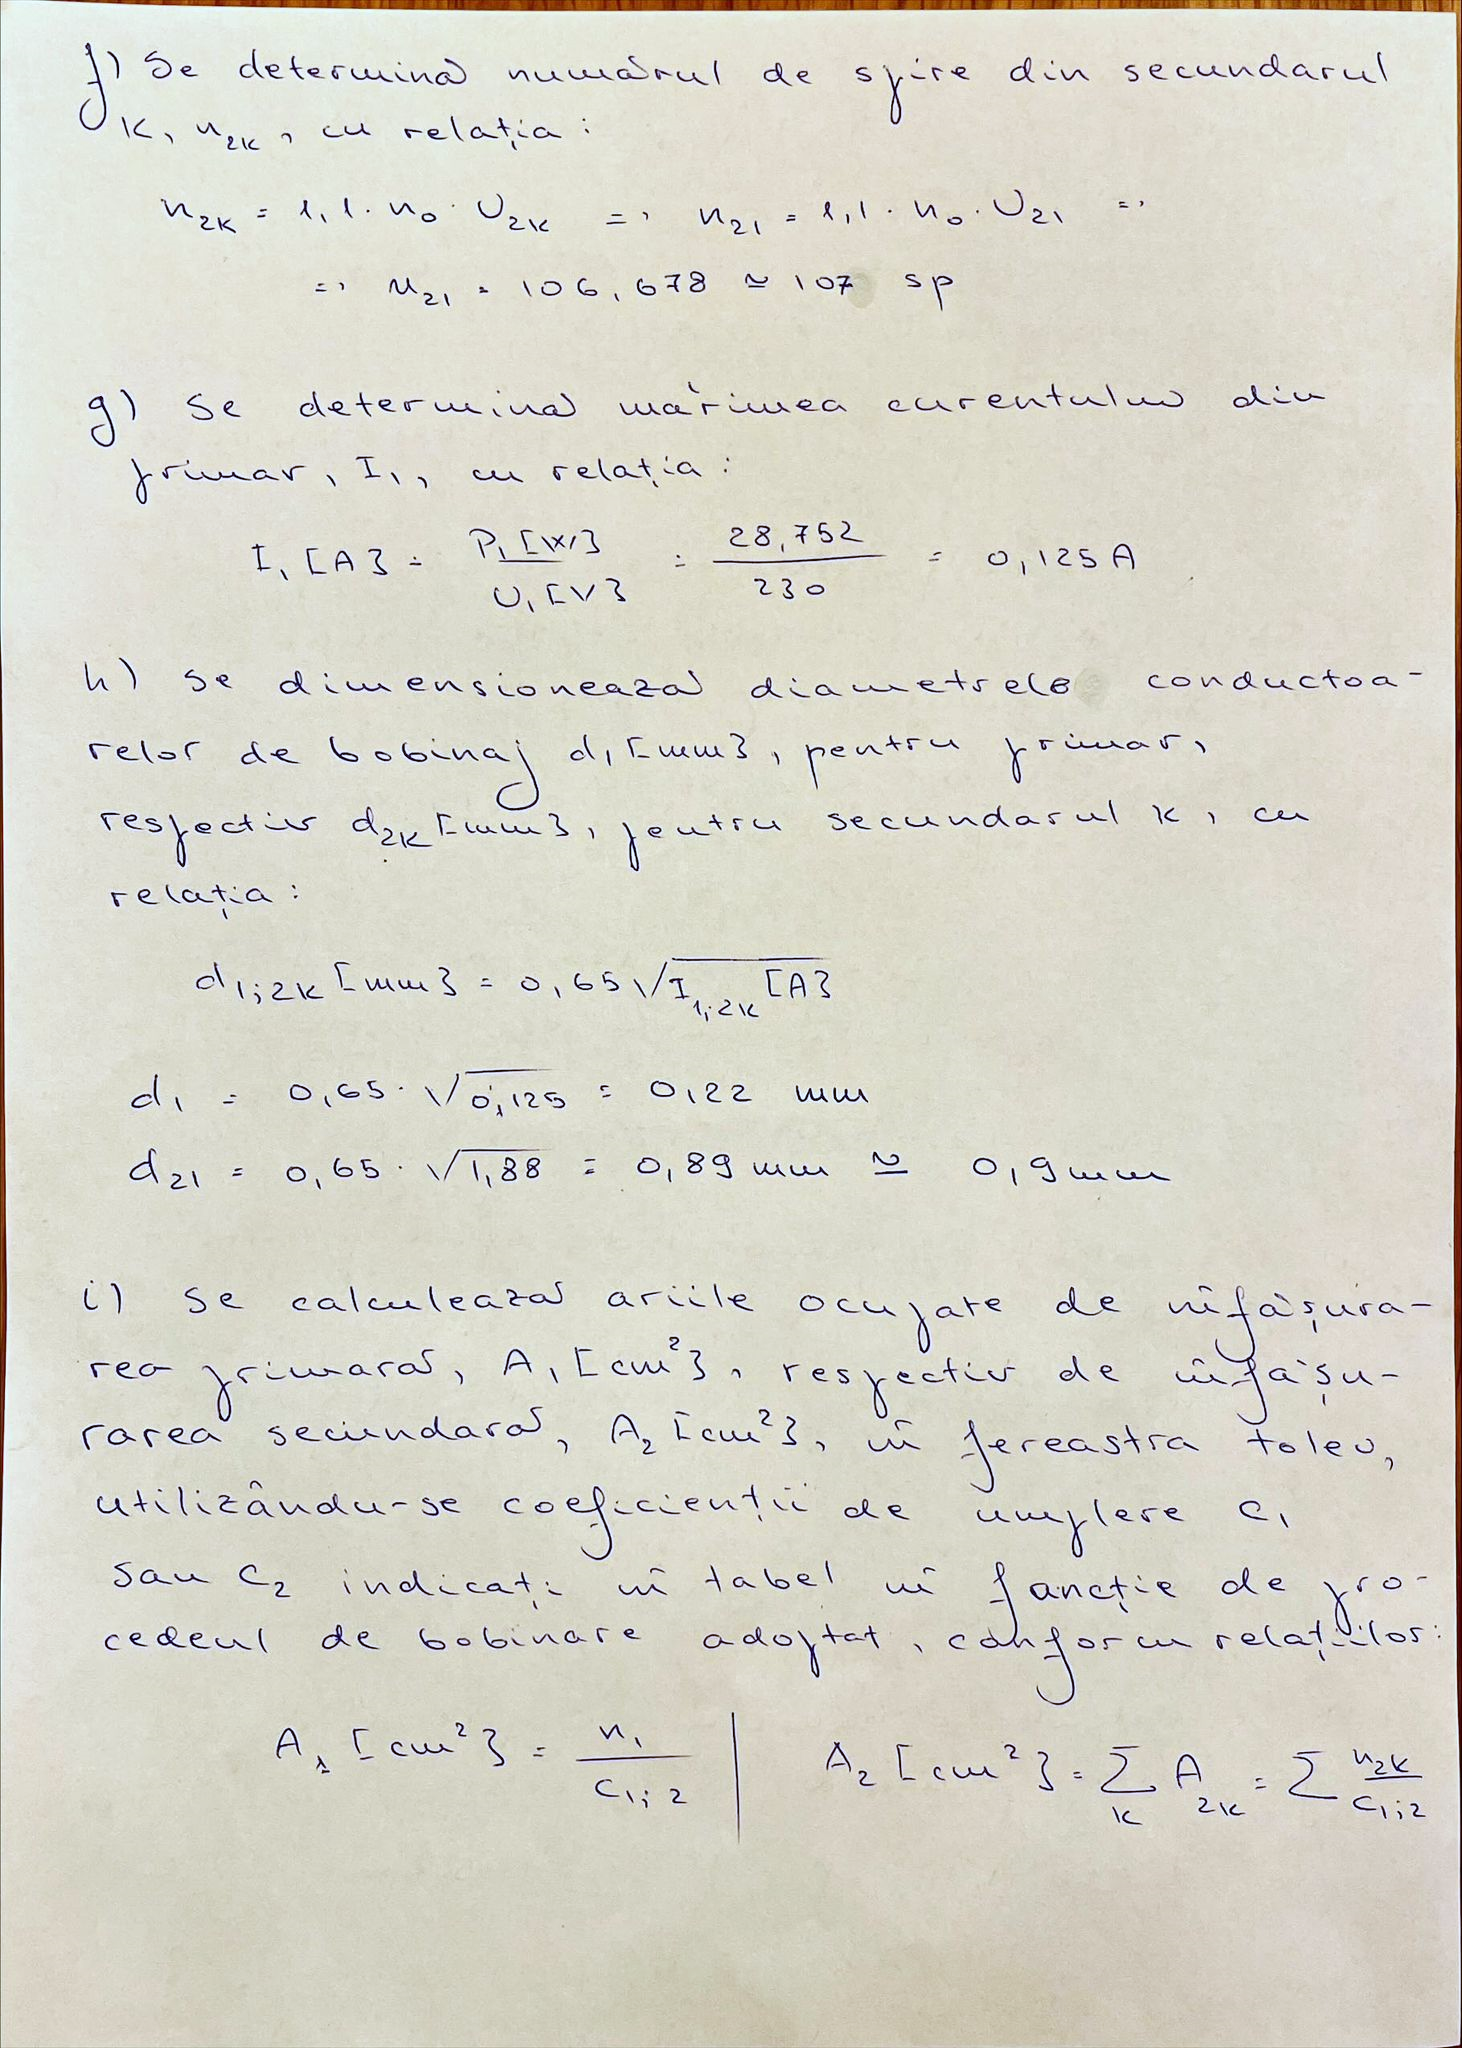 f) Se determină numărul de spire din secundarul
K, n2K, cu relația:
n2K = 1,1 · n0 · U2K => n21 = 1,1 · n0 · U21 =>
=> n21 = 106,678 ≃ 107 sp
g) Se determină mărimea curentului din
primar, I1, cu relația:
I1 [A] = P1 [W] / U1 [V] = 28,752 / 230 = 0,125 A
h) Se dimensionează diametrele conductoa-
relor de bobinaj d1 [mm], pentru primar,
respectiv d2K [mm], pentru secundarul K, cu
relația:
d1;2K [mm] = 0,65 √I1;2K [A]
d1 = 0,65 · √0,125 = 0,22 mm
d21 = 0,65 · √1,88 = 0,89 mm ≃ 0,9 mm
i) Se calculează ariile ocupate de înfășura-
rea primară, A1 [cm²], respectiv de înfășu-
rarea secundară, A2 [cm²], în fereastra tolei,
utilizându-se coeficienții de umplere C1
sau C2 indicați în tabel în funcție de pro-
cedeul de bobinare adoptat, conform relațiilor:
A1 [cm²] = n1 / C1;2 | A2 [cm²] = Σ K A2K = Σ n2K / C1;2